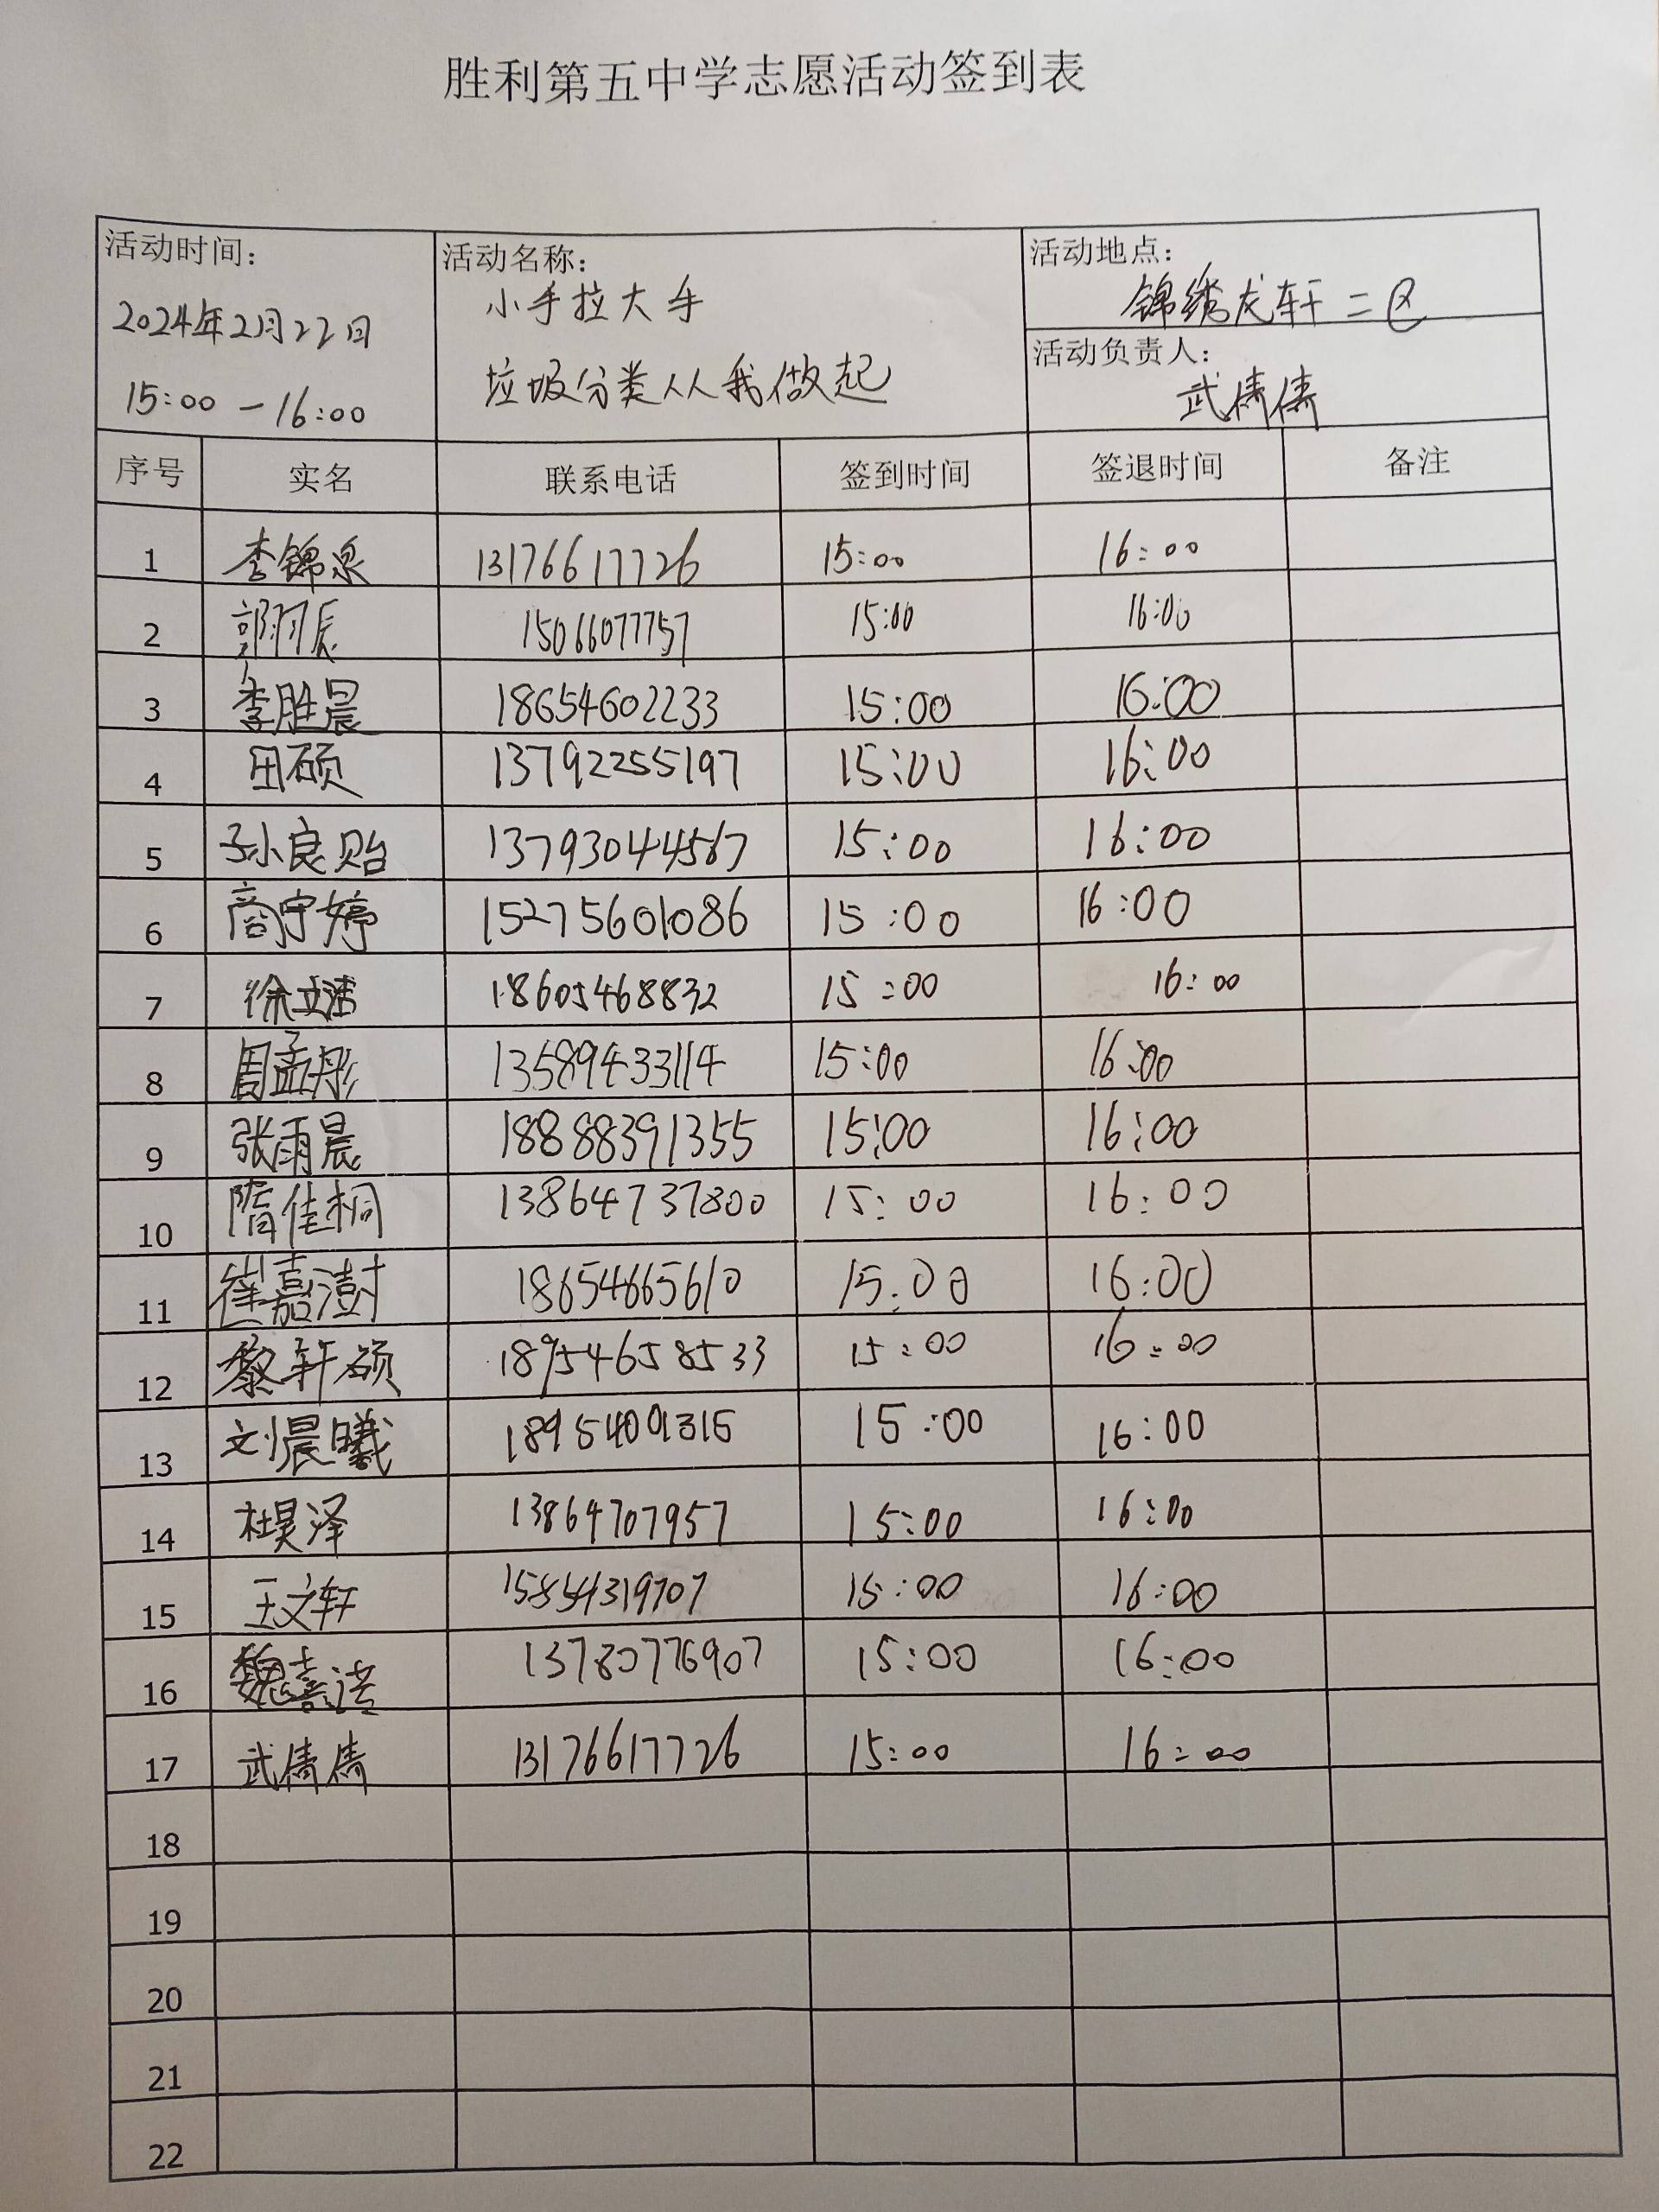 胜利第五中学志愿活动签到表
活动时间： 活动名称： 活动地点：
2024年2月22日 小手拉大手 锦绣龙轩二区
15:00-16:00 垃圾分类从我做起 活动负责人：
武倩倩
序号 实名 联系电话 签到时间 签退时间 备注
1 李锦泉 13176617726 15:00 16:00
2 郭羽辰 15066077757 15:00 16:00
3 李胜晨 18654602233 15:00 16:00
4 田硕 13792255197 15:00 16:00
5 孙良贻 13793044567 15:00 16:00
6 商宇婷 15275601086 15:00 16:00
7 徐立洁 18605468832 15:00 16:00
8 周孟彤 13589433114 15:00 16:00
9 张雨晨 18888391355 15:00 16:00
10 隋佳桐 13864737800 15:00 16:00
11 崔嘉澍 18654665610 15:00 16:00
12 黎轩硕 18954658533 15:00 16:00
13 刘晨曦 18954091315 15:00 16:00
14 杜昊泽 13864707957 15:00 16:00
15 王文轩 15854319707 15:00 16:00
16 13780776907 15:00 16:00
17 武倩倩 13176617726 15:00 16:00
18
19
20
21
22